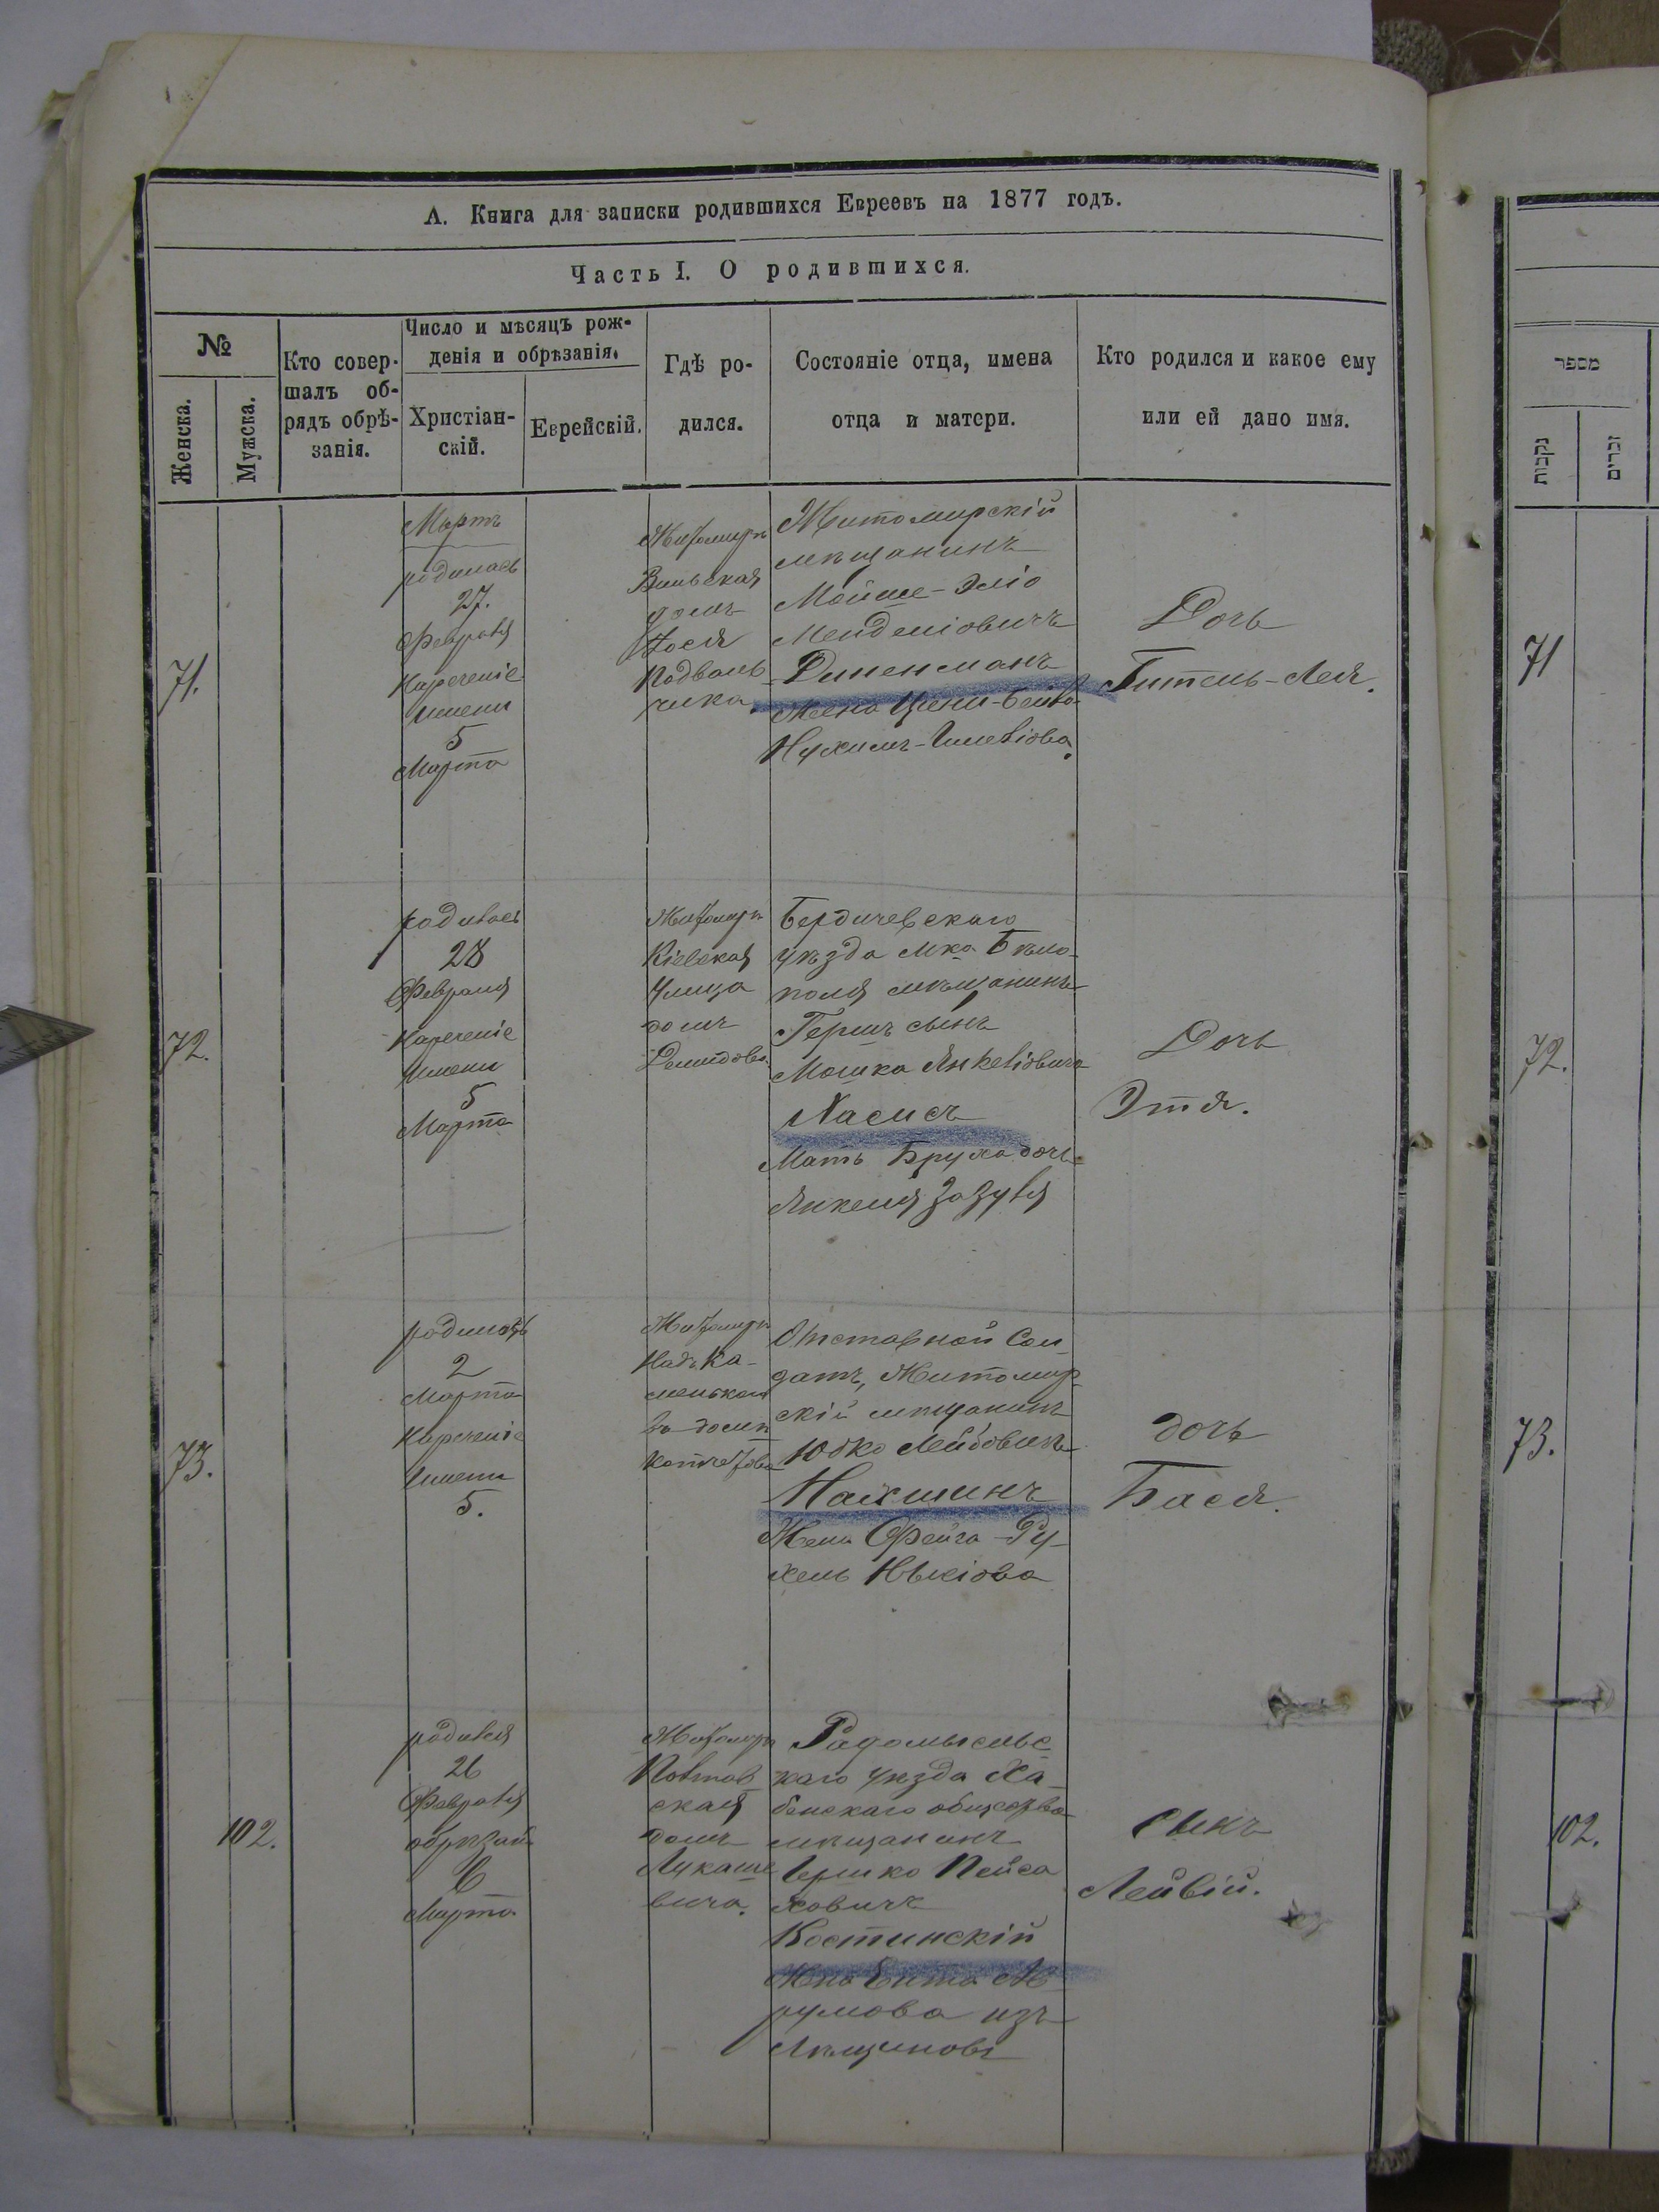 А. Книга для записки родившихся Евреевъ на 1877 годъ.
Часть I. О родившихся.
№
Женска.
Мужска.
Кто совер-
шалъ об-
рядъ обрѣ-
занія.
Число и мѣсяцъ рож-
денія и обрѣзанія.
Христіан-
скій.
Еврейскій.
Гдѣ ро-
дился.
Состояніе отца, имена
отца и матери.
Кто родился и какое ему
или ей дано имя.
71.
Мартъ
родилась
27.
Февраля
Нареченіе
Имени
5
Марта
Житомиръ
Вильская
домъ
Іося
Подваль
чика.
Житомирскій
мѣщанинъ
Мойше-Эліо
Менделіовичъ
Диненманъ
Жена
Нухимъ-
Дочь
Гитель-Лея.
72.
родилась
28
Февраля
Нареченіе
Имени
5
Марта
Житомиръ
Кіевская
Улица
домъ
Демидова.
Бердичевскаго
уѣзда мка Бѣло-
поля мѣщанинъ
Гершъ сынъ
Мошка Янкеліовича
Хасисъ
Мать Бруха дочь
Янкеля Зазуля
Дочь
Этя.
73.
родилась
2
Марта
Нареченіе
Имени
5.
Житомиръ
Надъ Ка-
менькою
въ домѣ
Отставной Сол-
датъ, Житомир-
скій мѣщанинъ
Юдко Лейбовичъ
Найшинъ
Жена Фейга-Ру-
хель
дочь
Бася.
102.
родился
26
Февраля
обрѣзанъ
6
Марта
Житомиръ
Полтов
ская
домъ
Лукаше
вича.
Радомысльс-
каго уѣзда Ха-
бенскаго общества
мѣщанинъ
Гершко Пейса
ховичъ
Костинскій
Жена Ента Ав-
румова изъ
Лѣщиновъ
Сынъ
Лейвій.
מספר
נקבות
זכרים
71
72.
73.
102.